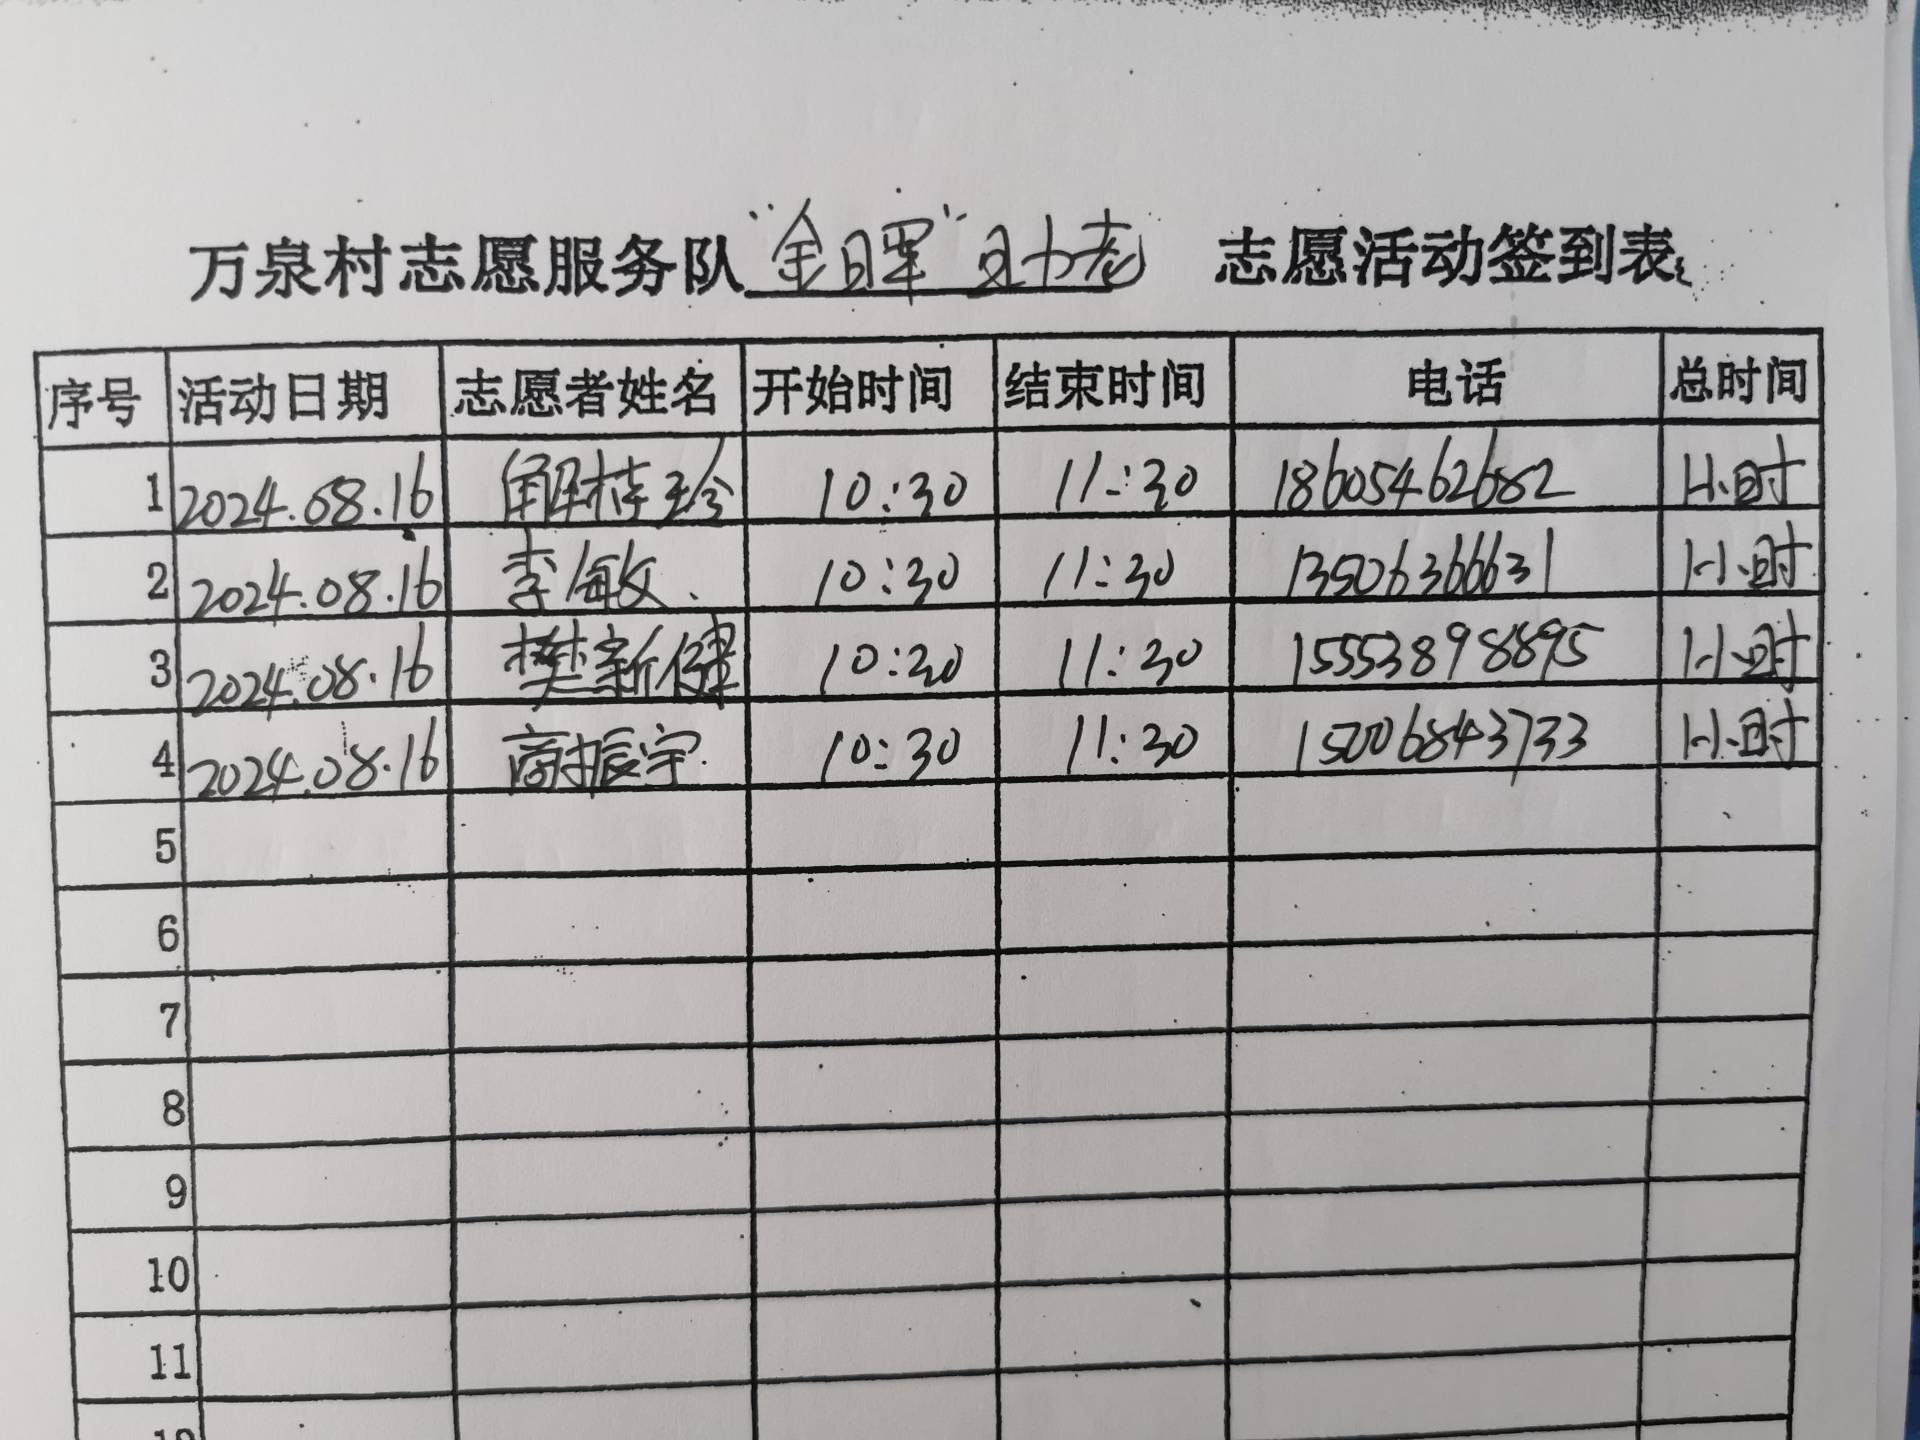 万泉村志愿服务队“金晖”助老 志愿活动签到表
序号 活动日期 志愿者姓名 开始时间 结束时间 电话 总时间
1 2024.08.16 解桂珍 10:30 11:30 18605462682 1小时
2 2024.08.16 李敏 10:30 11:30 13506366631 1小时
3 2024.08.16 樊新健 10:30 11:30 15553898895 1小时
4 2024.08.16 商振宇 10:30 11:30 15006843733 1小时
5
6
7
8
9
10
11